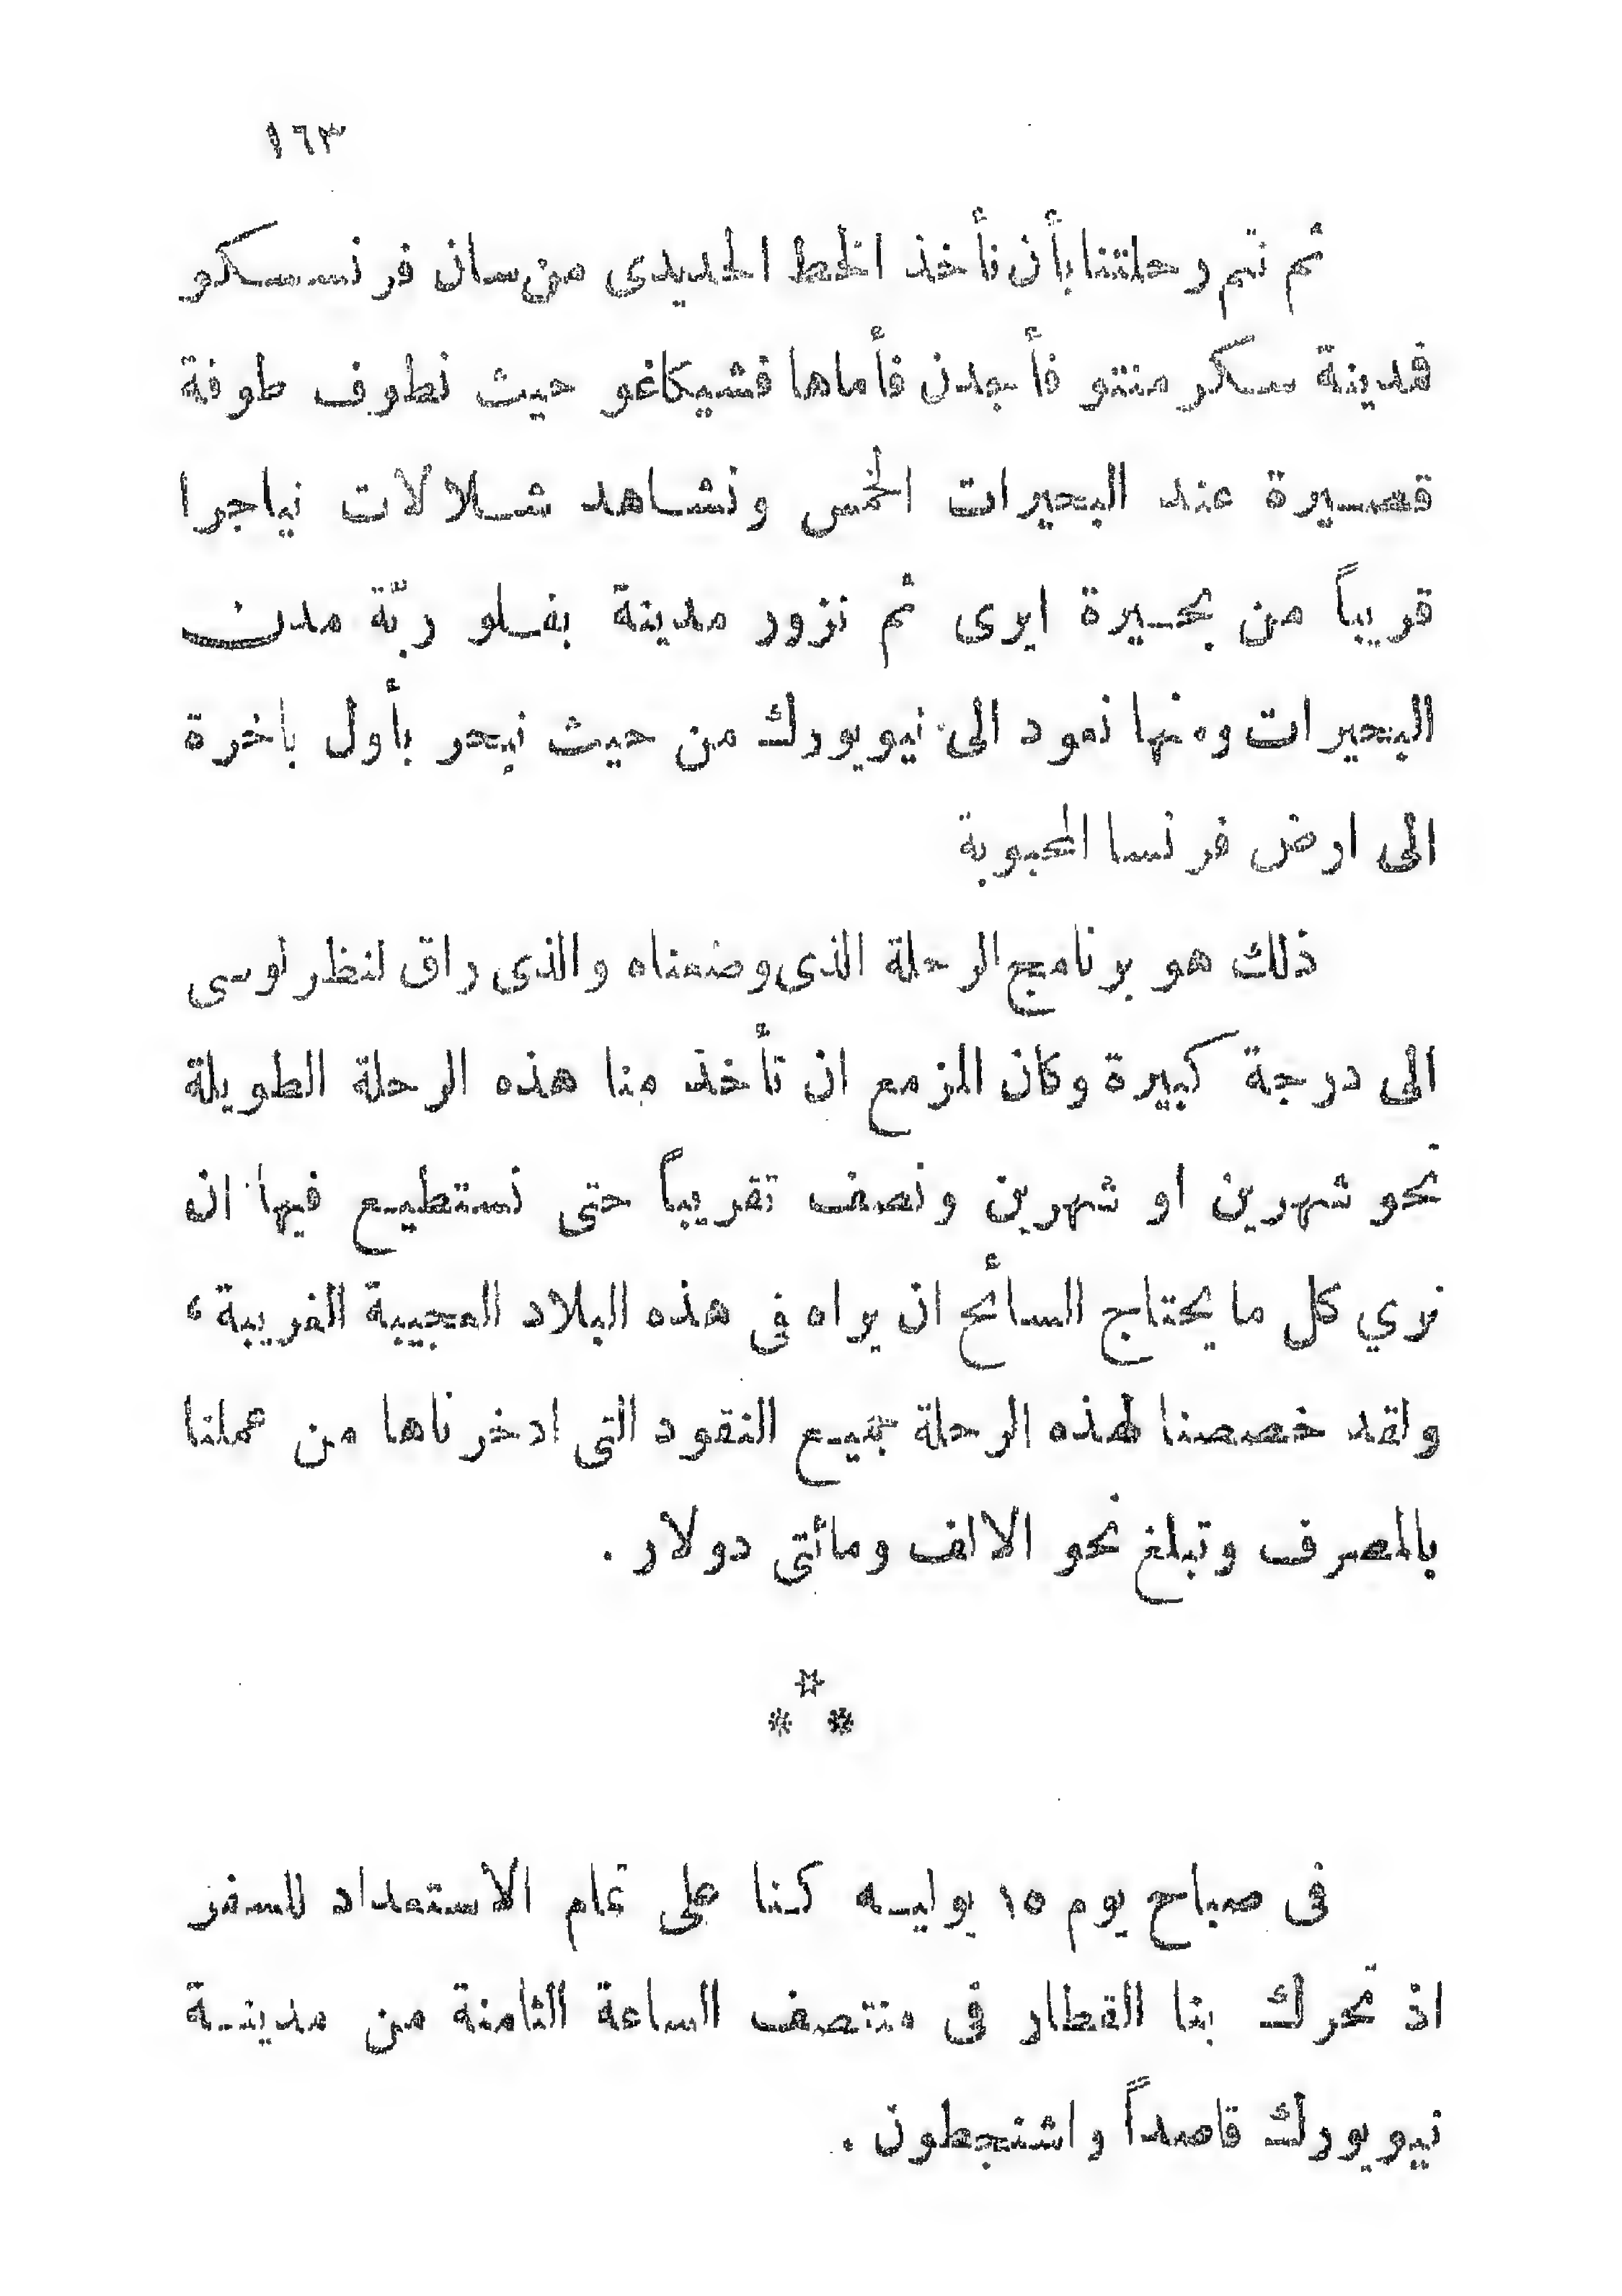 ١٦٣
ثم نتم رحلتنا بأن نأخذ الخط الحديدى من سان فرنسسكو
فمدينة سكرمنتو فأجدن فأماها فشيكاغو حيث نطوف طوفة
قصيرة عند البحيرات الخمس ونشاهد شلالات نياجرا
قريباً من بحيرة ايرى ثم نزور مدينة بفلو ربّة مدن
البحيرات ومنها نعود الى نيويورك من حيث نبحر بأول باخرة
الى ارض فرنسا المحبوبة
ذلك هو برنامج الرحلة الذى وضعناه والذى راق لنظر لوسى
الى درجة كبيرة وكان المزمع ان تأخذ منا هذه الرحلة الطويلة
نحو شهرين او شهرين ونصف تقريباً حتى نستطيع فيها ان
نري كل ما يحتاج السائح ان يراه فى هذه البلاد العجيبة الغريبة،
ولقد خصصنا لهذه الرحلة جميع النقود التى ادخرناها من عملنا
بالمصرف وتبلغ نحو الالف ومائتى دولار .
* * *
فى صباح يوم ١٥ يوليه كنا على تمام الاستعداد للسفر
اذ تحرك بنا القطار فى منتصف الساعة الثامنة من مدينة
نيويورك قاصداً واشنجطون .